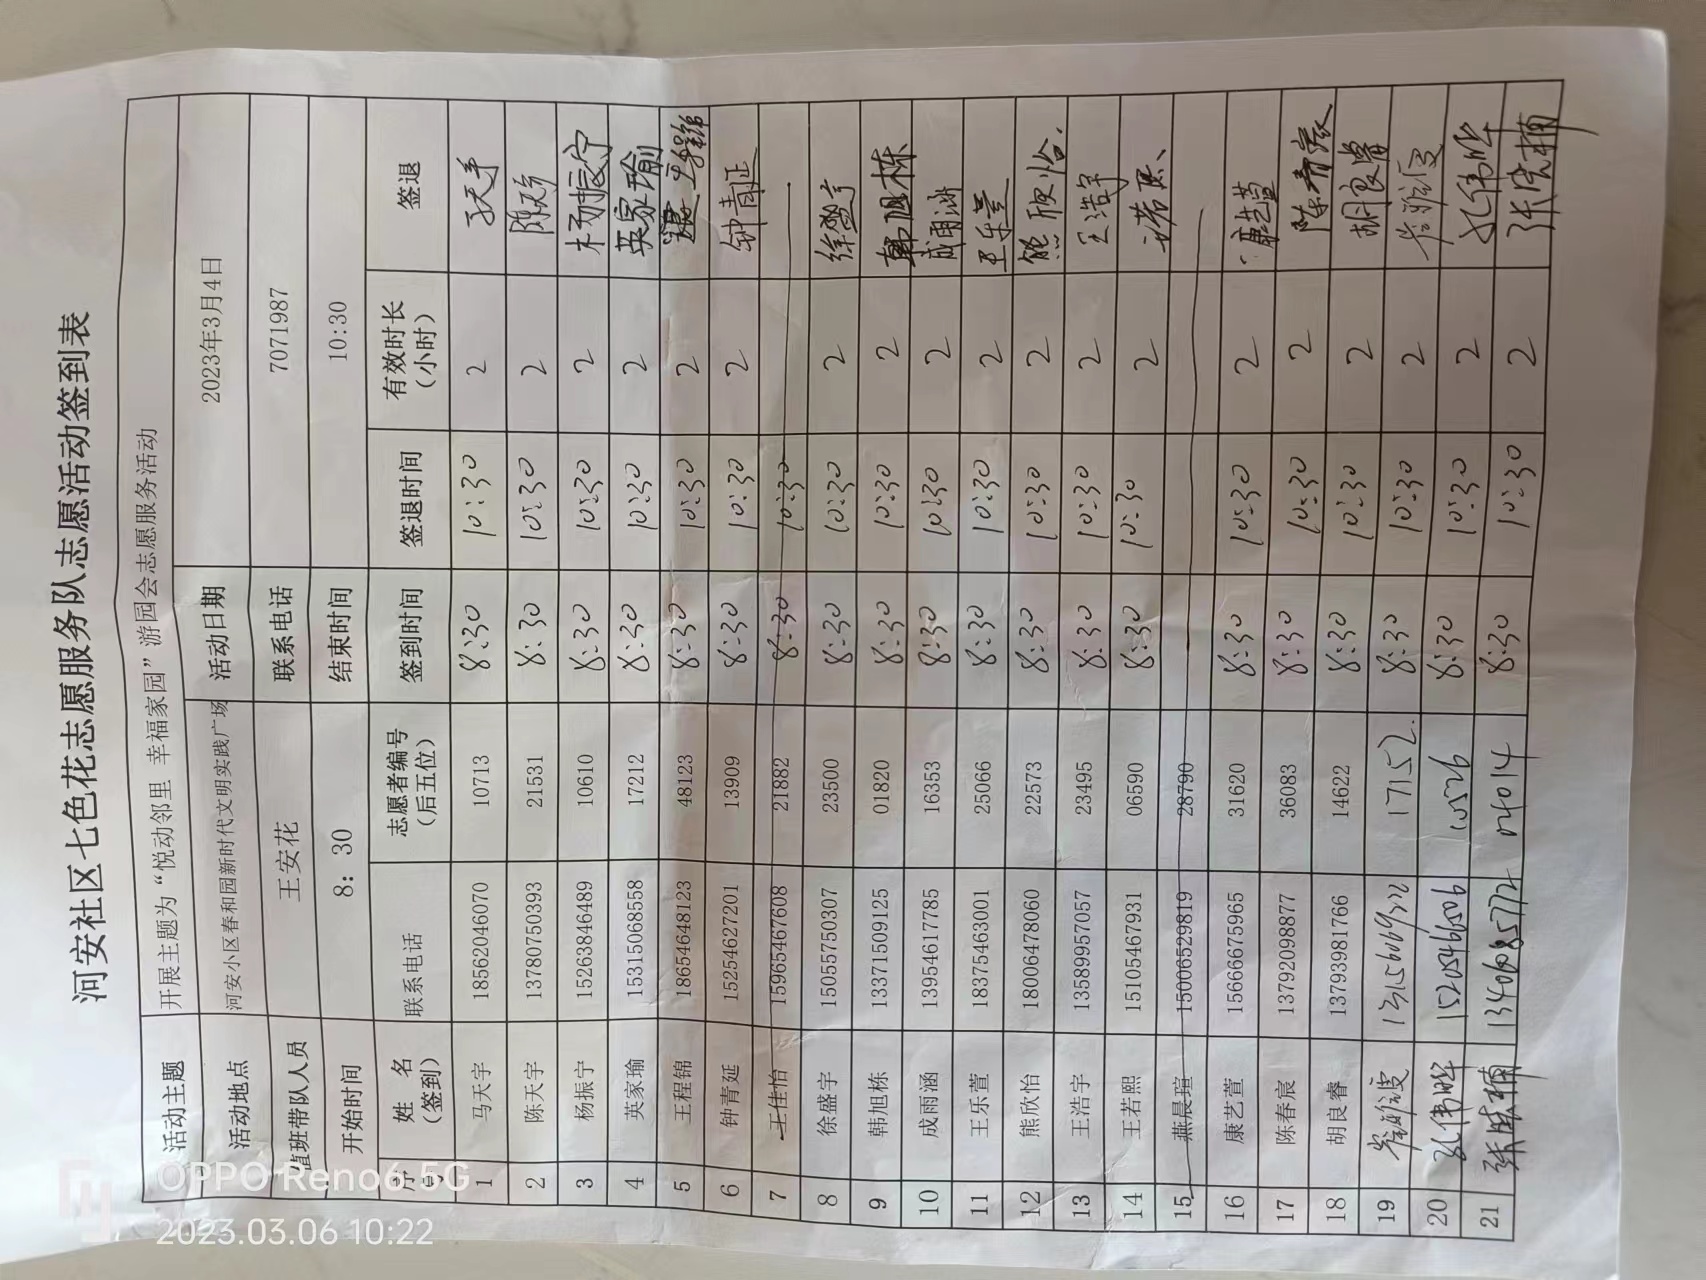 河安社区七色花志愿服务队志愿活动签到表
活动主题 开展主题为“悦动邻里 幸福家园”游园会志愿服务活动
活动地点 河安小区春和园新时代文明实践广场 活动日期 2023年3月4日
值班带队人员 王安花 联系电话 7071987
开始时间 8：30 结束时间 10:30
序号 姓 名（签到） 联系电话 志愿者编号（后五位） 签到时间 签退时间 有效时长（小时） 签退
1 马天宇 18562046070 10713 8:30 10:30 2
2 陈天宇 13780750393 21531 8:30 10:30 2
3 杨振宁 15263846489 10610 8:30 10:30 2 杨振宁
4 英家瑜 15315068558 17212 8:30 10:30 2 英家瑜
5 王程锦 18654648123 48123 8:30 10:30 2 王程锦
6 钟青延 15254627201 13909 8:30 10:30 2 钟青延
7 王佳怡 15965467608 21882 8:30 10:30
8 徐盛宇 15055750307 23500 8:30 10:30 2
9 韩旭栋 13371509125 01820 8:30 10:30 2 韩旭栋
10 成雨涵 13954617785 16353 8:30 10:30 2 成雨涵
11 王乐萱 18375463001 25066 8:30 10:30 2 王乐萱
12 熊欣怡 18006478060 22573 8:30 10:30 2 熊欣怡.
13 王浩宇 13589957057 23495 8:30 10:30 2 王浩宇
14 王若熙 15105467931 06590 8:30 10:30 2 王若熙
15 燕晨瑄 15006529819 28790
16 康艺萱 15666675965 31620 8:30 10:30 2 康艺萱
17 陈春宸 13792098877 36083 8:30 10:30 2 陈春宸
18 胡良睿 13793981766 14622 8:30 10:30 2 胡良睿
19 17152. 8:30 10:30 2
20 孔伟晔 15205466506 8:30 10:30 2 孔伟晔
21 13406085772 04014 8:30 10:30 2
OPPO Reno6 5G
2023.03.06 10:22